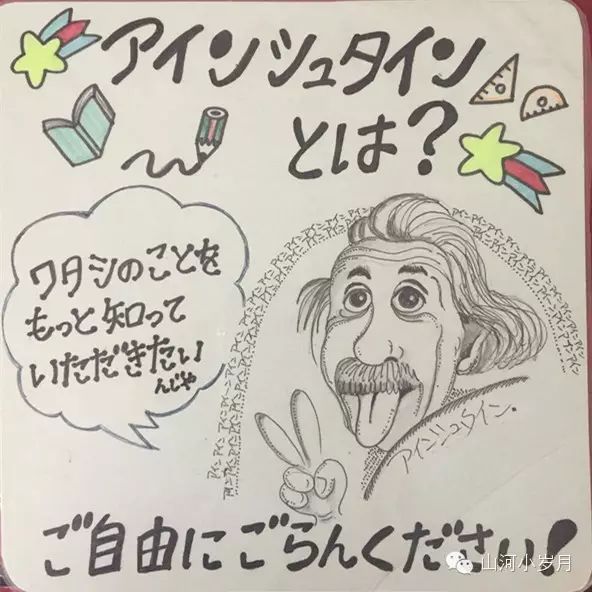 アインシュタイン
とは?
ワタシのことを
もっと知って
いただきたい
んじゃ
アインシュタイン.
ご自由にごらんください!
山河小岁月